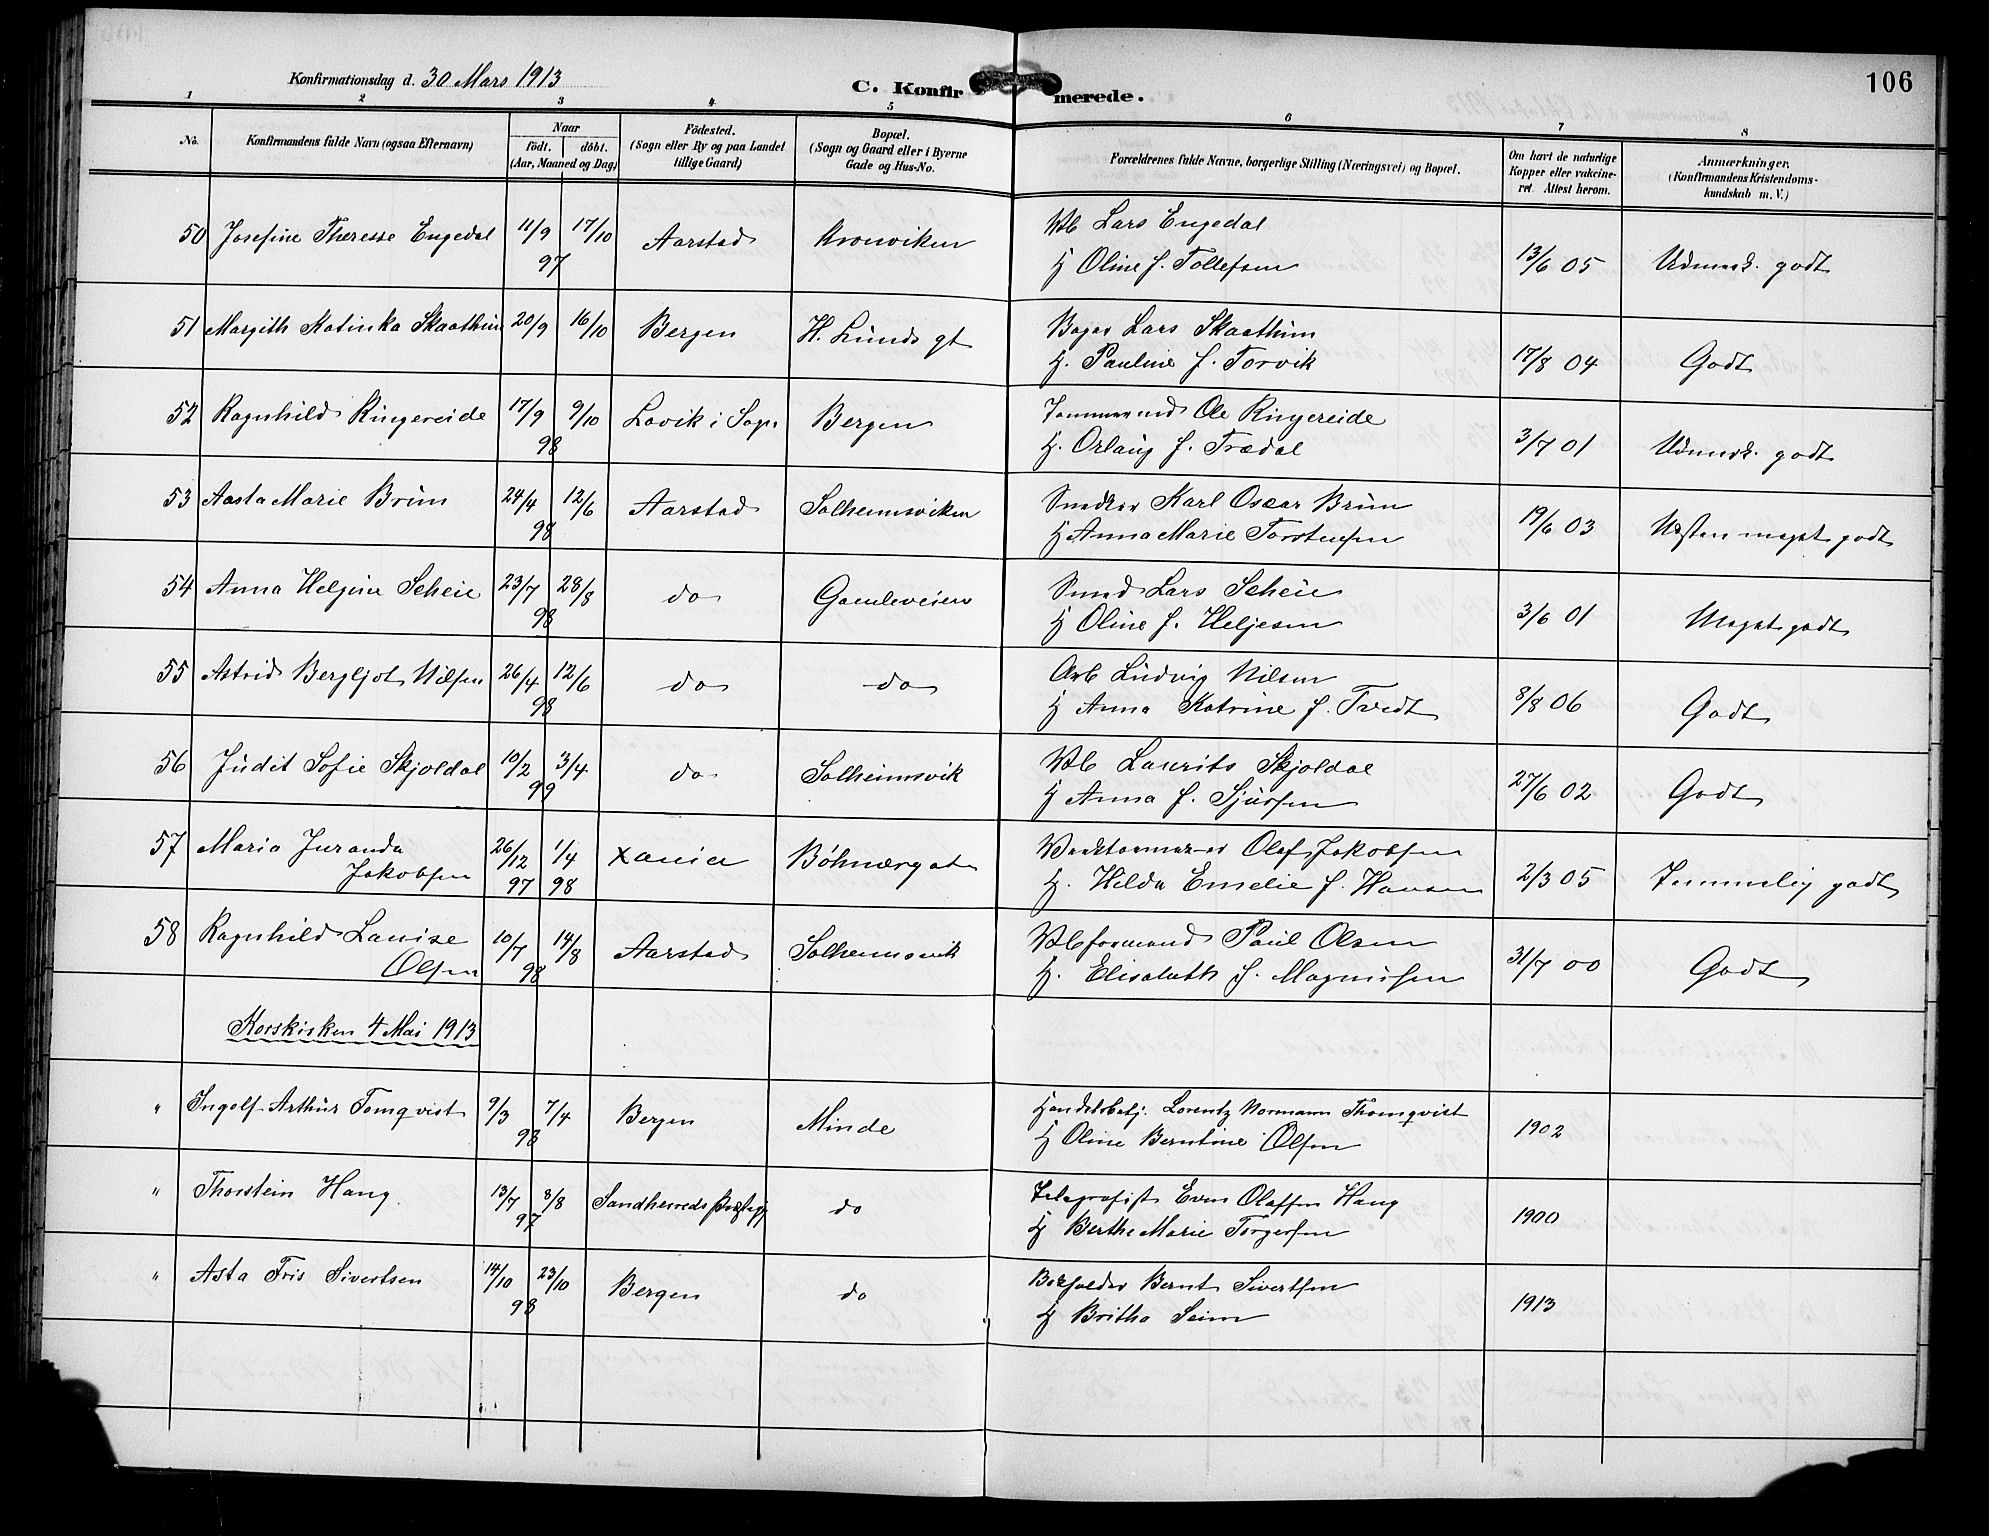 Konfirmationsdag d. 30 Mars 1913
C. Konfirmerede.
106
1 2 3 4 5 6 7 8
No.
Konfirmandens fulde Navn (ogsaa Efternavn)
Naar
födt. döbt.
(Aar, Maaned og Dag)
Födested.
(Sogn eller By og paa Landet
tillige Gaard)
Bopæl.
(Sogn og Gaard eller i Byerne
Gade og Hus-No.
Forældrenes fulde Navne, borgerlige Stilling (Næringsvei) og Bopæl.
Om havt de naturlige
Kopper eller vakcine-
ret. Attest herom.
Anmærkninger.
(Konfirmandens Kristendoms-
kundskab m. V.)
50 Josefine Therese Engedal 11/9 17/10 97 Aarstad Kronviken
Lars Engedal
H Oline f. Tollefsen 13/6 05 Udmerk. godt
51 Margith Katinka Skaathun 20/9 16/10 Bergen H. Lunds gt
Bager Lars Skaathun
H. Pauline f. Torvik 17/8 04 Godt
52 Ragnhild Ringereide 17/9 9/10 98 Lavik i Sogn Bergen
Tømmermd Ole Ringereide
H. Orlaug f. Trædal 3/7 01 Udmerk. godt
53 Aasta Marie Brun 24/4 12/6 98 Aarstad Solheimsviken
Snedker Karl Oscar Brun
H Anna Marie Torstensen 19/6 03 Næsten meget godt
54 Anna Helgine Scheie 23/7 28/8 98 do Gamleveien
Smed Lars Scheie
H Oline f. Heljesen 3/6 01 Meget godt
55 Astrid Bergljot Nilsen 26/4 12/6 98 do do
Arb Ludvig Nilsen
H Anna Katrine f. Tvedt 8/8 06 Godt
56 Judit Sofie Skjoldal 10/2 3/4 99 do Solheimsvik
Laurits Skjoldal
H Anna f. Sjursen 27/6 02 Godt
57 Maria Juranda
Jakobsen 26/12 97 1/4 98 Xania Böhmergaten
Olaf Jakobsen
H. Hilda Emelie f. Hansen 2/3 05 Temmelig godt
58 Ragnhild Lovise
Olsen 10/7 14/8 98 Aarstad Solheimsvik
formand Paul Olsen
H. Elisabeth f. Magnusen 31/7 00 Godt
Korskirken 4 Mai 1913
" Ingolf Arthur Tomqvist 9/3 7/4 98 Bergen Minde
Handelsbetj. Lorentz Normann Thomqvist
H Oline Berntine Olsen 1902
" Thorstein Haug 13/7 8/8 97 Sandherreds Prestegj do
Telegrafist Even Olaffsen Haug
H Berthe Marie Torgersen 1900
" Asta Fris Sivertsen 14/10 23/10 98 Bergen do
Bokholder Bernt Sivertsen
H Britha Seim 1913